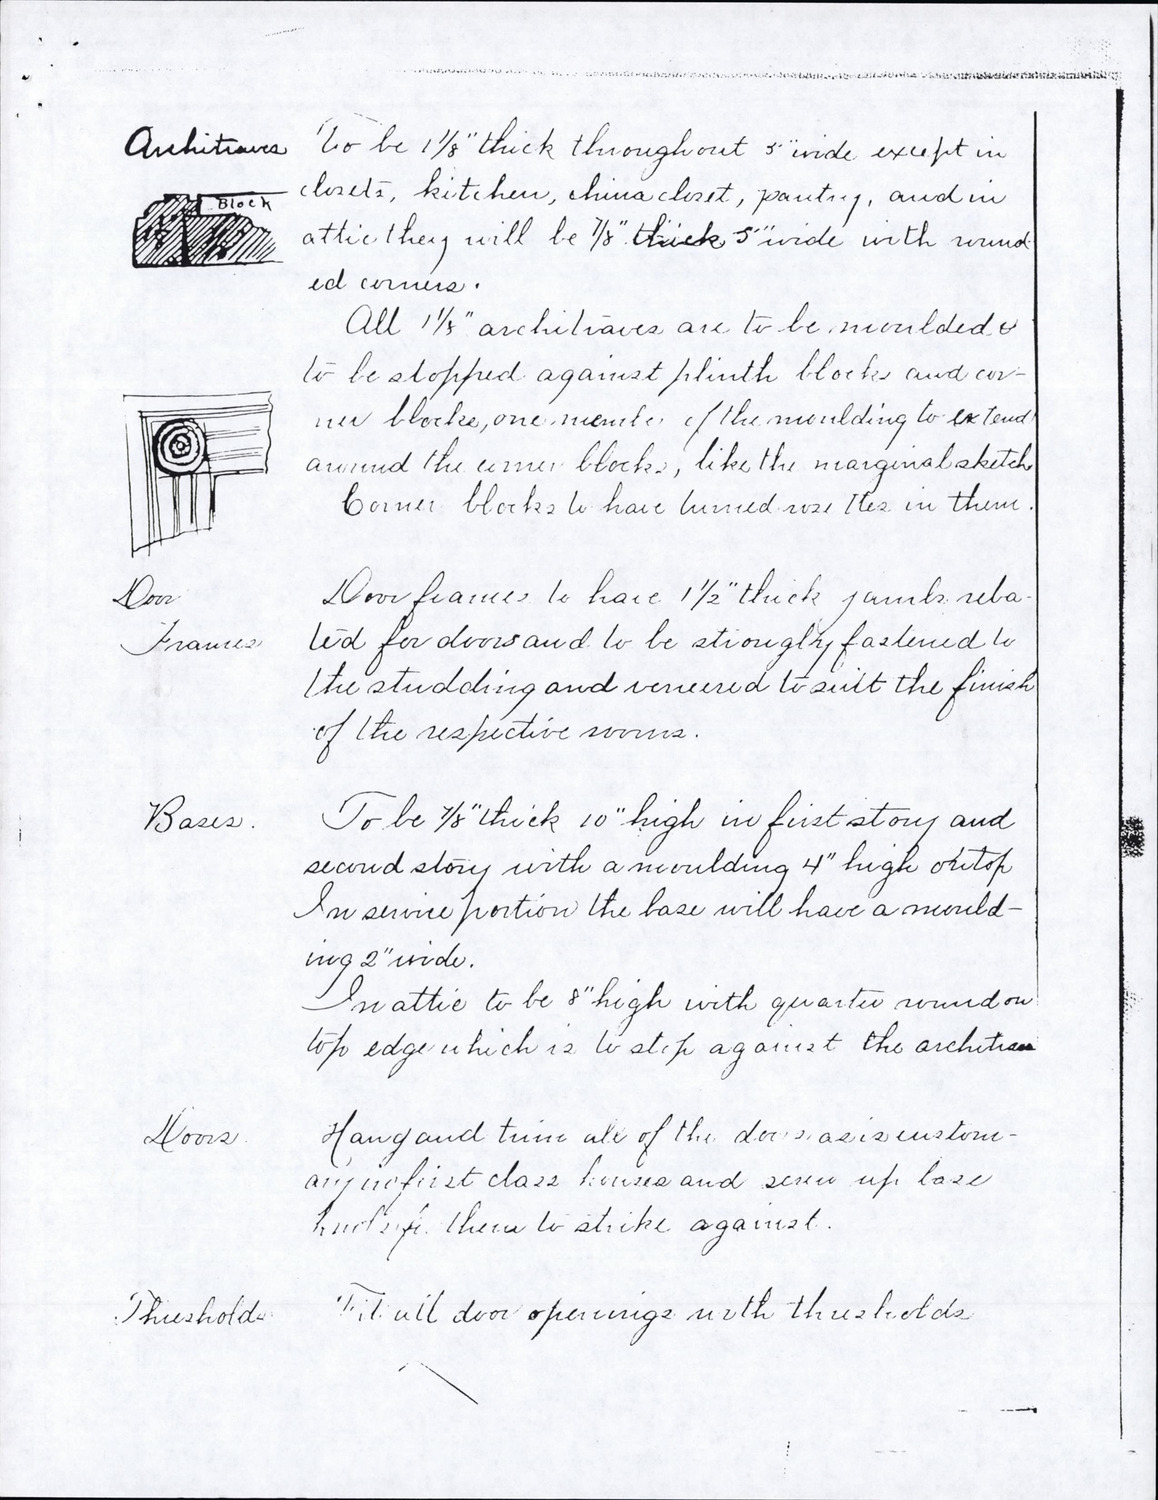 Architraves To be 1 1/8" thick throughout 5" wide except in
closets, kitchen, china closet, pantry, and in
Block
attic they will be 7/8" thick 5" wide with round
ed corners.
All 1 1/8" architraves are to be moulded &
to be stopped against plinth blocks and cor-
ner blocks, one member of the moulding to extend
around the corner blocks, like the marginal sketch
Corner blocks to have turned rosettes in them.
Door Door frames to have 1 1/2" thick jambs reba-
Frames ted for doors and to be strongly fastened to
the studding and veneered to suit the finish
of the respective rooms.
Bases. To be 7/8" thick 10" high in first story and
second story with a moulding 4" high on top
In service portion the base will have a mould-
ing 2" wide.
In attic to be 8" high with quarter round on
top edge which is to stop against the architrave
Doors. Hang and trim all of the doors as is custom-
ary in first class houses and screw up base
knobs for them to strike against.
Thresholds Fit all door openings with thresholds